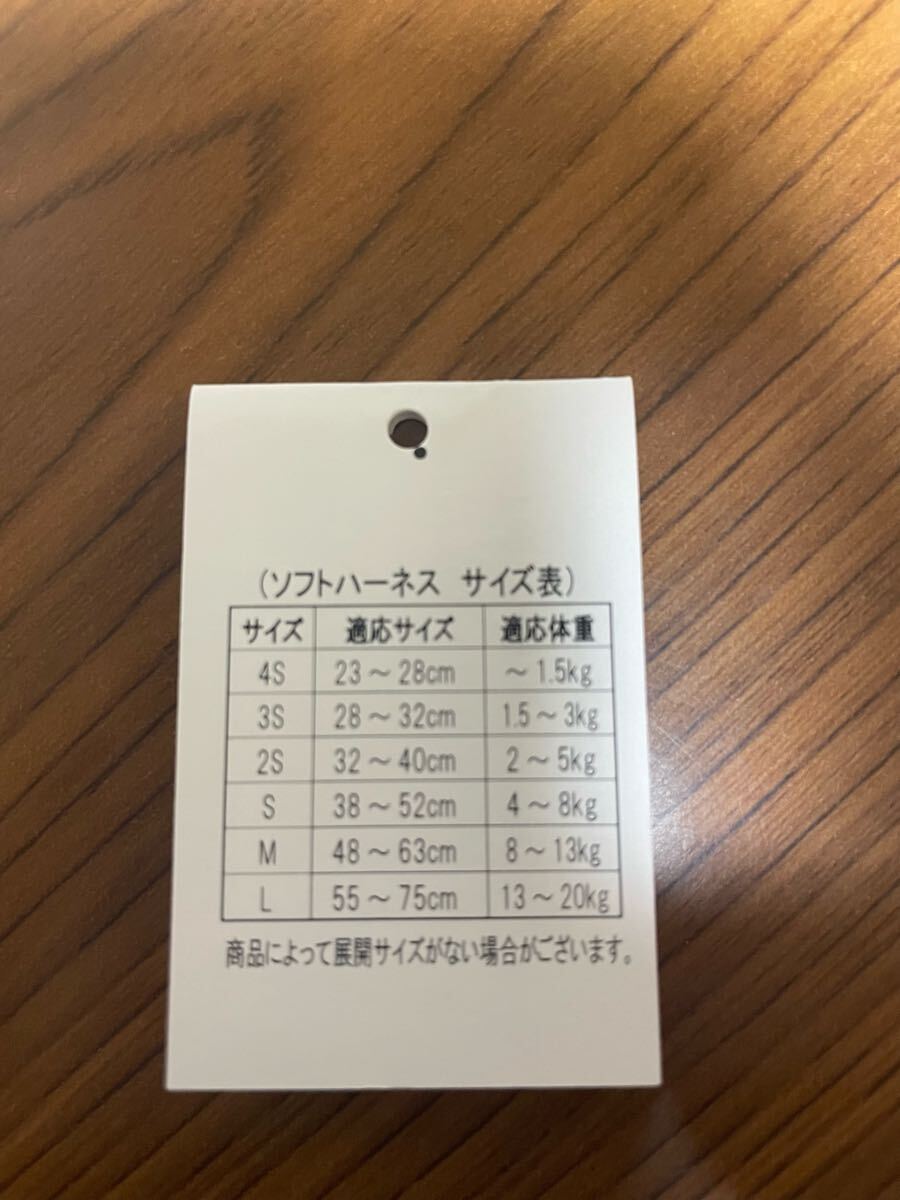 (ソフトハーネス サイズ表)
サイズ 適応サイズ 適応体重
4S 23～28cm ～1.5kg
3S 28～32cm 1.5～3kg
2S 32～40cm 2～5kg
S 38～52cm 4～8kg
M 48～63cm 8～13kg
L 55～75cm 13～20kg
商品によって展開サイズがない場合がございます。